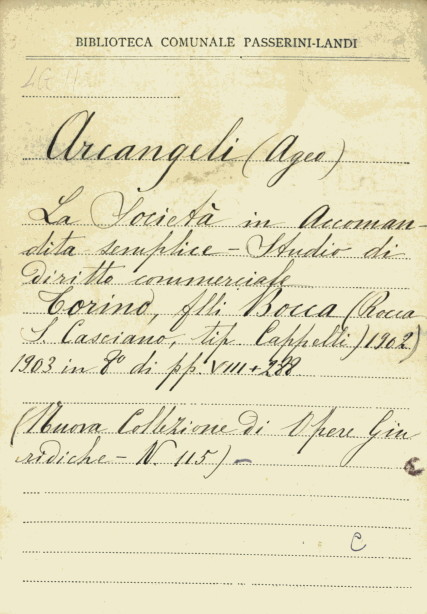 BIBLIOTECA COMUNALE PASSERINI-LANDI
Arcangeli (Ageo)
La Società in Accoman-
dita semplice - Studio di
diritto commerciale
Torino, flli Bocca (Rocca
S. Casciano, tip. Cappelli) 1902)
1903 in 8º di pp. VIII + 288
(Nuova Collezione di Opere Giu-
ridiche - N. 115) -
C